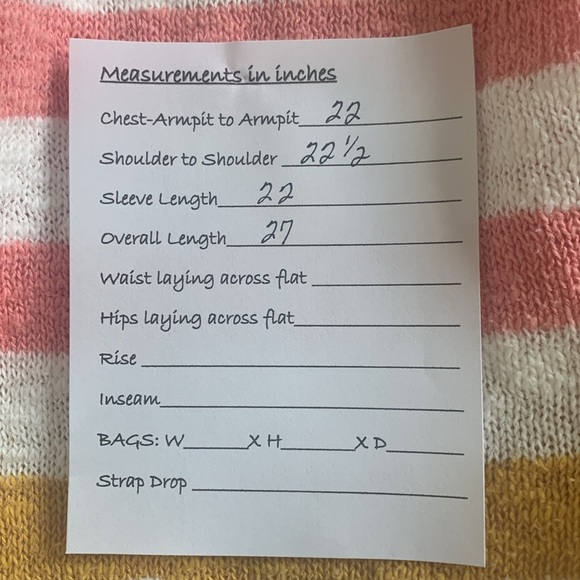 Measurements in inches
Chest-Armpit to Armpit 22
Shoulder to Shoulder 22 1/2
Sleeve Length 22
Overall Length 27
Waist laying across flat
Hips laying across flat
Rise
Inseam
BAGS: W______X H______X D______
Strap Drop